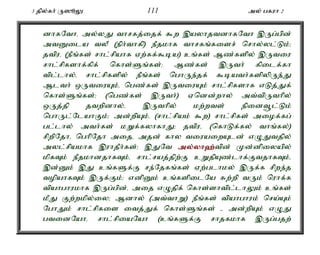 3 தில்கர் ருஸூலு 111 அல் பகரா 2
னாகவோ, அல்லது வாசகத்தைக் கூற இயலாதவனாகவோ இருப்பின்
அவனுடைய வலீ (நிர்வாகி) நீதமாக வாசகங்களைச் சொல்லட்டும்;
தவிர, (நீங்கள் சாட்சியாக ஏற்கக்கூடிய) உங்கள் ஆண்களில் இருவரை
சாட்சிகளாக்கிக் கொள்ளுங்கள்; ஆண்கள் இருவர் கிடைக்கா
விட்டால், சாட்சிகளில் நீங்கள் பொருந்தக் கூடியவர்களிலிருந்து
ஆடவர் ஒருவரையும், பெண்கள் இருவரையும் சாட்சிகளாக எடுத்துக்
கொள்ளுங்கள்; (பெண்கள் இருவர்) ஏனென்றால் அவ்விருவரில்
ஒருத்தி தவறினால், இருவரில் மற்றவள் நினைவூட்டும்
பொருட்டேயாகும்; அன்றியும், (சாட்சியம் கூற) சாட்சிகள் அழைக்கப்
பட்டால் அவர்கள் மறுக்கலாகாது; தவிர, (கொடுக்கல் வாங்கல்)
சிறிதோ, பெரிதோ அதை, அதன் கால வரையறையுடன் எழுதுவதில்
அலட்சியமாக இராதீர்கள்; இதுவே அல்லாஹ்வின் முன்னிலையில்
மிகவும் நீதமானதாகவும், சாட்சியத்திற்கு உறுதியுண்டாக்குவதாகவும்,
இன்னும் இது உங்களுக்கு சந்தேகங்கள் ஏற்படாமல் இருக்க சிறந்த
வழியாகவும் இருக்கும்; எனினும் உங்களிடையே சுற்றி வரும் ரொக்க
வியாபாரமாக இருப்பின், அதை எழுதிக் கொள்ளாவிட்டாலும் உங்கள்
மீது குற்றமில்லை; ஆனால் (அவ்வாறு) நீங்கள் வியாபாரம் செய்யும்
போதும் சாட்சிகளை வைத்துக் கொள்ளுங்கள் - அன்றியும் எழுது
பவனையோ, சாட்சியையோ (உங்களுக்கு சாதகமாக இருப்பதற்